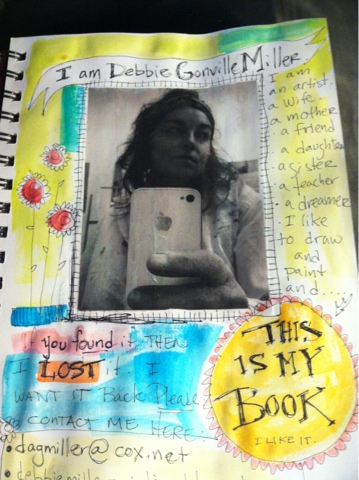 I am DEBBIE GONVILLE MILLER.
I am
an artist.
a wife.
a mother
a friend
a daughter
a sister
a teacher
a dreamer
I like
to draw
and
paint
and....
If you found it THEN
I LOST it. I
WANT IT Back. Please
CONTACT ME HERE
• dagmiller@cox.net
THIS
IS MY
BOOK
I LIKE IT.